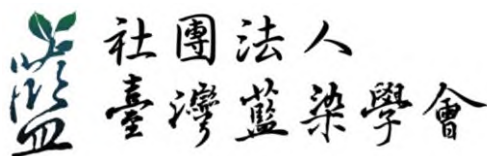 藍
社團法人
臺灣藍染學會